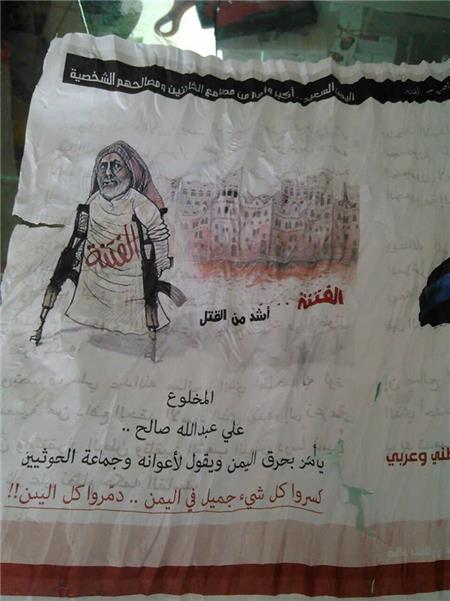 اليمن السعيد .. أكبر وأهم من مطامع الخائنين ومصالحهم الشخصية
الفتنة
الفتنة ...
أشد من القتل
المخلوع
علي عبدالله صالح ..
يأمر بحرق اليمن ويقول لأعوانه وجماعة الحوثيين
كسروا كل شيء جميل في اليمن .. دمروا كل اليمن!!
وعربي